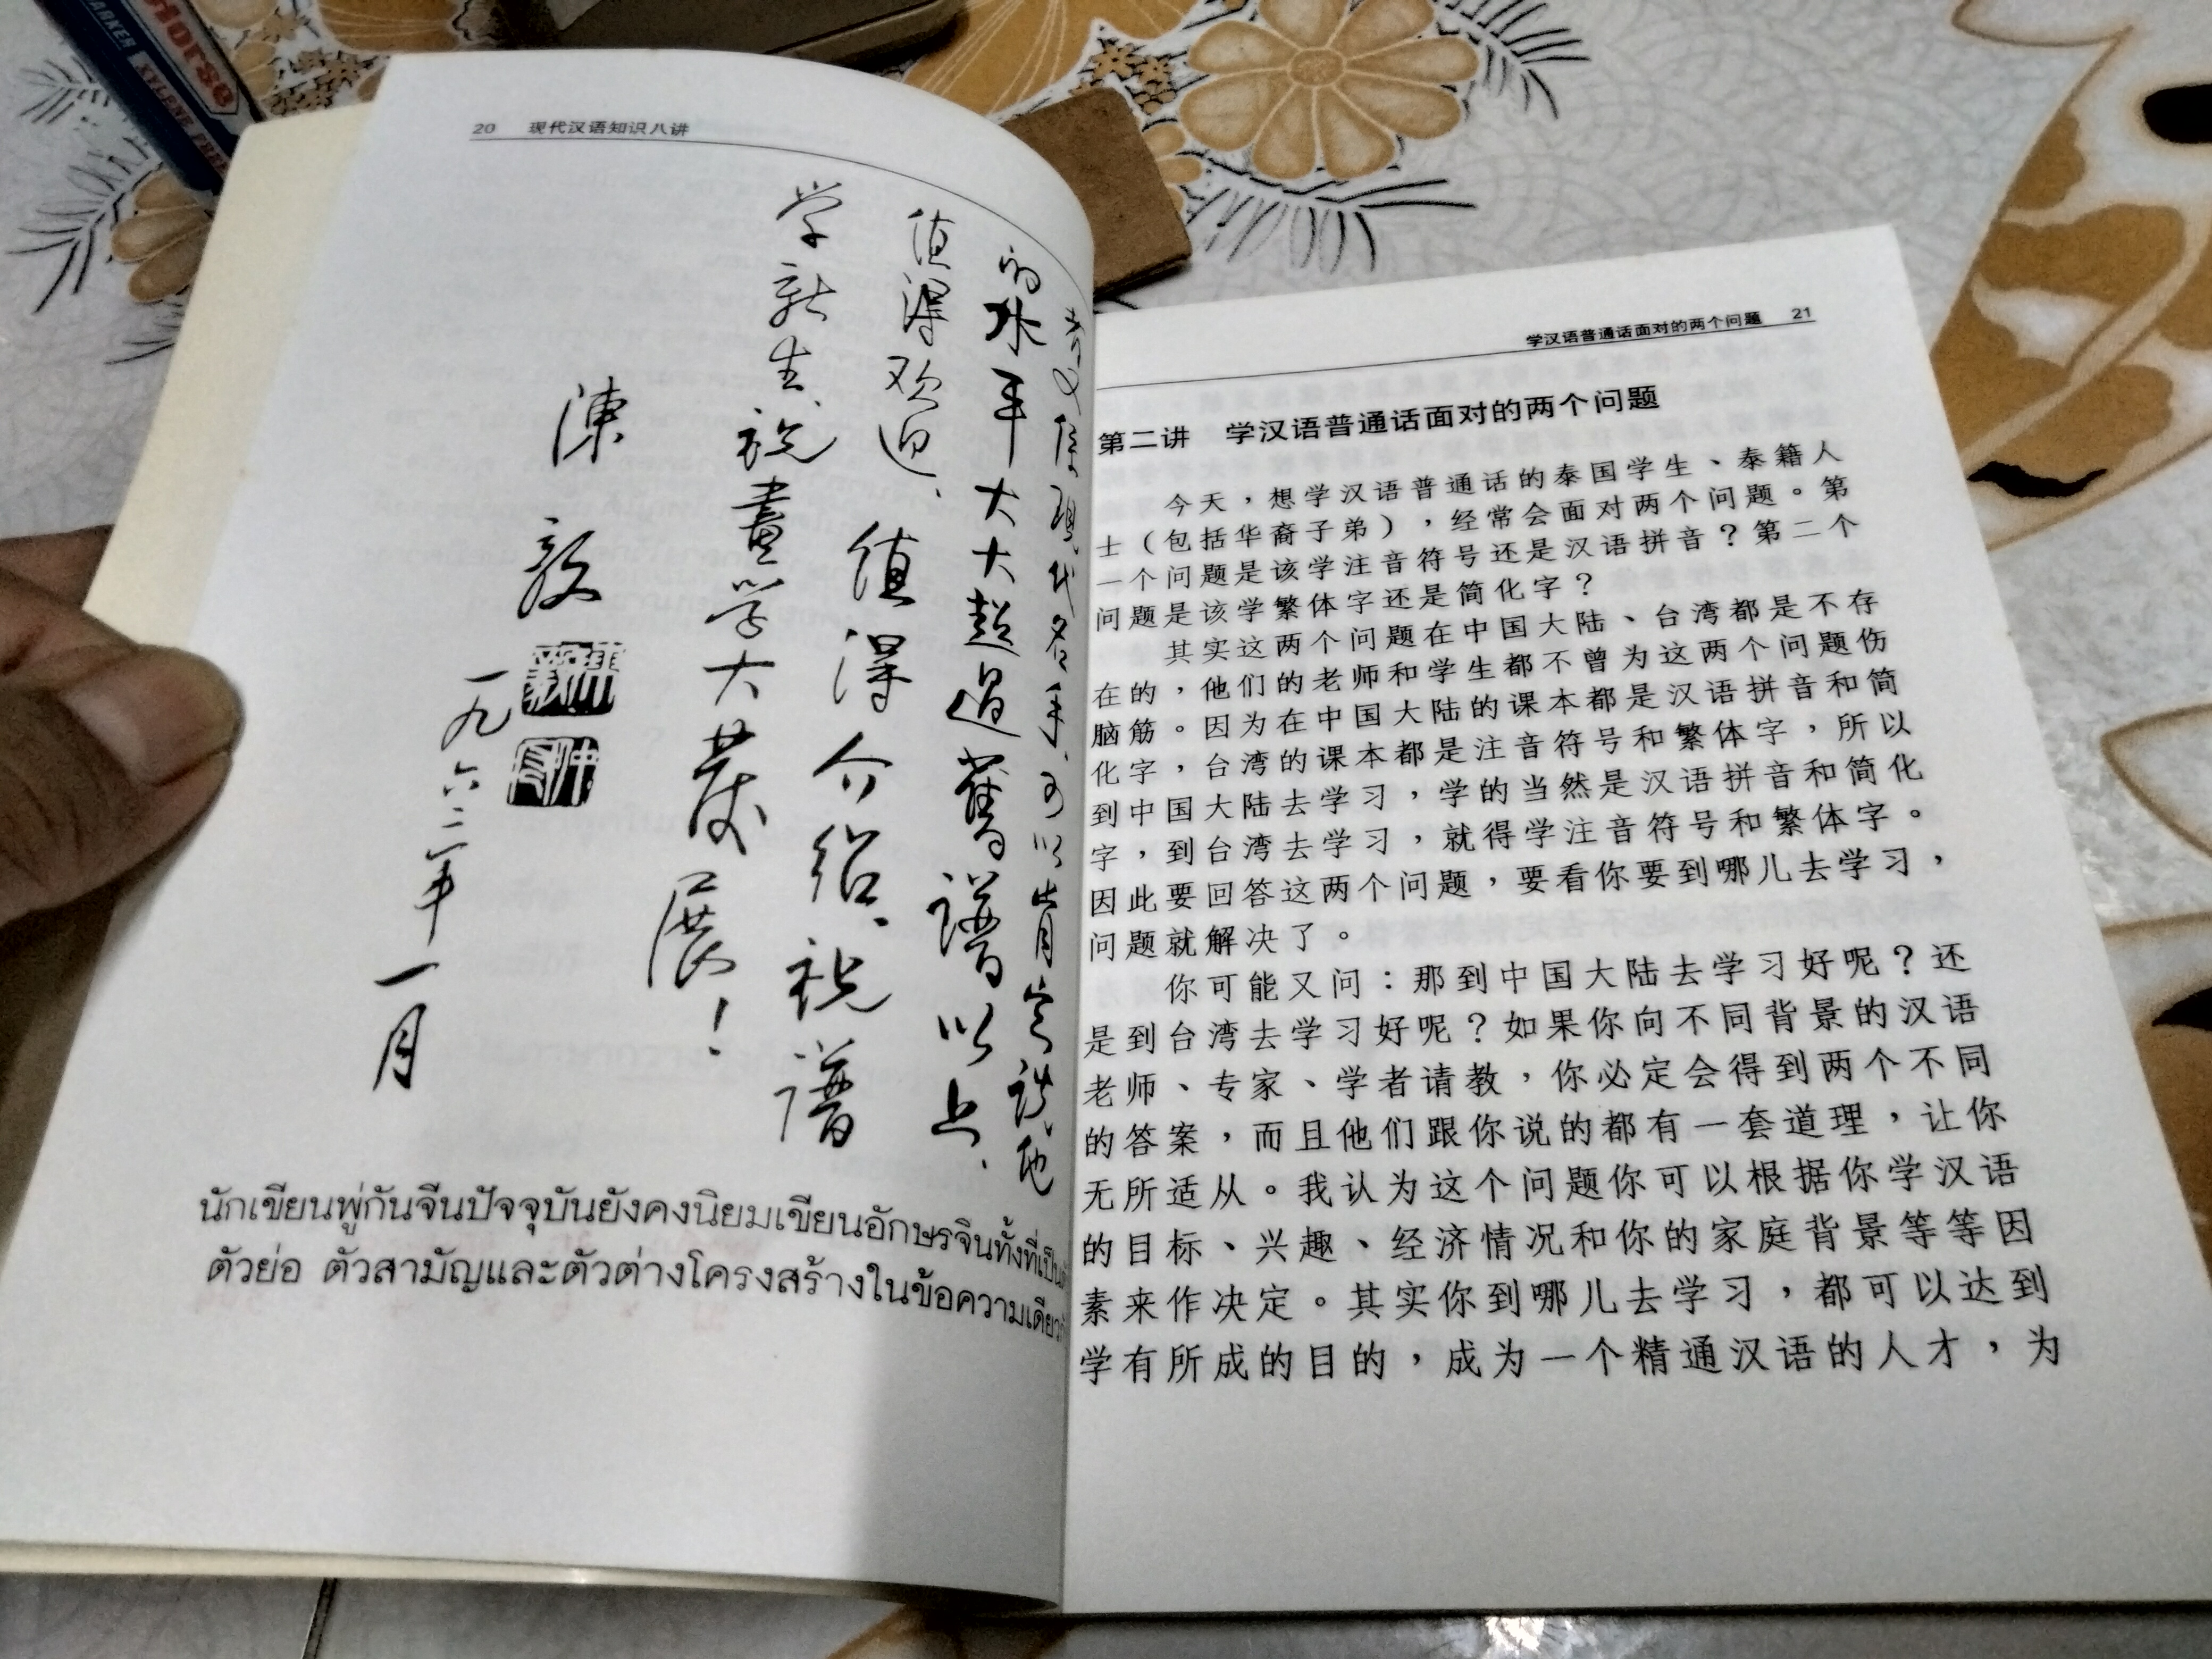 Horse
MARKER
XYLENE FREE
20 现代汉语知识八讲
者又系现代名手、可以肯定说、他
的水平大大超过舊谱以上、
值得欢迎、值得介绍、祝谱
学新生、祝畫学大发展！
陳毅
一九六二年一月
นักเขียนพู่กันจีนปัจจุบันยังคงนิยมเขียนอักษรจีนทั้งที่เป็น
ตัวย่อ ตัวสามัญและตัวต่างโครงสร้างในข้อความเดียว
学汉语普通话面对的两个问题 21
第二讲 学汉语普通话面对的两个问题
今天，想学汉语普通话的泰国学生、泰籍人
士（包括华裔子弟），经常会面对两个问题。第
一个问题是该学注音符号还是汉语拼音？第二个
问题是该学繁体字还是简化字？
其实这两个问题在中国大陆、台湾都是不存
在的，他们的老师和学生都不曾为这两个问题伤
脑筋。因为在中国大陆的课本都是汉语拼音和简
化字，台湾的课本都是注音符号和繁体字，所以
到中国大陆去学习，学的当然是汉语拼音和简化
字，到台湾去学习，就得学注音符号和繁体字。
因此要回答这两个问题，要看你要到哪儿去学习，
问题就解决了。
你可能又问：那到中国大陆去学习好呢？还
是到台湾去学习好呢？如果你向不同背景的汉语
老师、专家、学者请教，你必定会得到两个不同
的答案，而且他们跟你说的都有一套道理，让你
无所适从。我认为这个问题你可以根据你学汉语
的目标、兴趣、经济情况和你的家庭背景等等因
素来作决定。其实你到哪儿去学习，都可以达到
学有所成的目的，成为一个精通汉语的人才，为